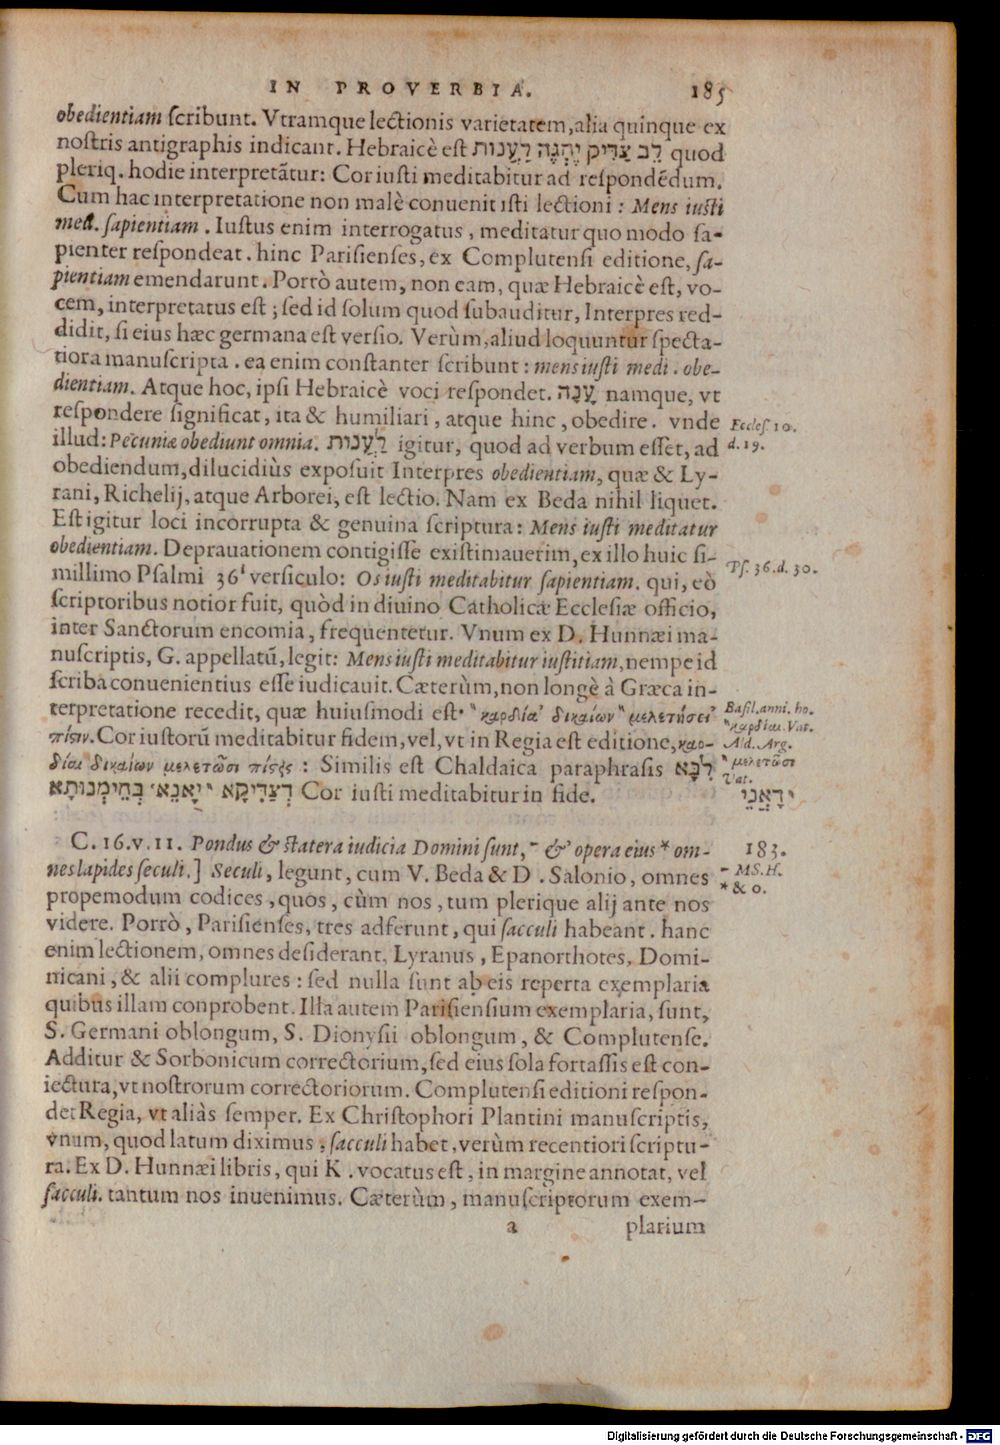 IN PROVERBIA. 185
obedientiam ſcribunt. Vtramque lectionis varietatem, alia quinque ex
noſtris antigraphis indicant. Hebraicè eſt לֵב צַדִּיק יֶהְגֶּה לַעֲנוֹת quod
pleriq. hodie interpretātur: Cor iuſti meditabitur ad reſpondēdum.
Cum hac interpretatione non malè conuenit iſti lectioni: Mens iuſti
med. ſapientiam. Iuſtus enim interrogatus, meditatur quo modo ſa-
pienter reſpondeat. hinc Pariſienſes, ex Complutenſi editione, ſa-
pientiam emendarunt. Porrò autem, non eam, quæ Hebraicè eſt, vo-
cem, interpretatus eſt; ſed id ſolum quod ſubauditur, Interpres red-
didit, ſi eius hæc germana eſt verſio. Verùm, aliud loquuntur ſpecta-
tiora manuſcripta. ea enim conſtanter ſcribunt: mens iuſti medi. obe-
dientiam. Atque hoc, ipſi Hebraicè voci reſpondet. עָנָה namque, vt
reſpondere ſignificat, ita & humiliari, atque hinc, obedire. vnde
Eccleſ. 10.
illud: Pecuniæ obediunt omnia. לַעֲנוֹת igitur, quod ad verbum eſſet, ad
d. 19.
obediendum, dilucidiùs expoſuit Interpres obedientiam, quæ & Ly-
rani, Richelij, atque Arborei, eſt lectio. Nam ex Beda nihil liquet.
Eſt igitur loci incorrupta & genuina ſcriptura: Mens iuſti meditatur
obedientiam. Deprauationem contigiſſe exiſtimauerim, ex illo huic ſi-
millimo Pſalmi 36ⁱ verſiculo: Os iuſti meditabitur ſapientiam. qui, eò
Pſ. 36. d. 30.
ſcriptoribus notior fuit, quòd in diuino Catholicæ Eccleſiæ officio,
inter Sanctorum encomia, frequentetur. Vnum ex D. Hunnæi ma-
nuſcriptis, G. appellatū, legit: Mens iuſti meditabitur iuſtitiam, nempe id
ſcriba conuenientius eſſe iudicauit. Cæterùm, non longè à Græca in-
terpretatione recedit, quæ huiuſmodi eſt· " καρδία' δικαίων " μελετήσει'
Baſil. anni. ho.
" καρδίαι. Vat.
πίστιν. Cor iuſtorū meditabitur fidem, vel, vt in Regia eſt editione, καρ-
Ald. Arg.
δίαι δικαίων μελετῶσι πίστεις: Similis eſt Chaldaica paraphraſis לִבָּא
" μελετῶσι
Vat.
דְצַדִּיקָא יַאֲנֵא בְּהֵימָנוּתָא Cor iuſti meditabitur in fide.
יְדָאֲנֵי
C. 16. v. 11. Pondus & ſtatera iudicia Domini ſunt, - & opera eius * om-
183.
nes lapides ſeculi.] Seculi, legunt, cum V. Beda & D. Salonio, omnes
- MS. H.
* & o.
propemodum codices, quos, cùm nos, tum plerique alij ante nos
videre. Porrò, Pariſienſes, tres adferunt, qui ſacculi habeant. hanc
enim lectionem, omnes deſiderant, Lyranus, Epanorthotes, Domi-
nicani, & alii complures: ſed nulla ſunt ab eis reperta exemplaria
quibus illam conprobent. Illa autem Pariſienſium exemplaria, ſunt,
S. Germani oblongum, S. Dionyſii oblongum, & Complutenſe.
Additur & Sorbonicum correctorium, ſed eius ſola fortaſſis eſt con-
iectura, vt noſtrorum correctoriorum. Complutenſi editioni reſpon-
det Regia, vt aliàs ſemper. Ex Chriſtophori Plantini manuſcriptis,
vnum, quod latum diximus, ſacculi habet, verùm recentiori ſcriptu-
ra. Ex D. Hunnæi libris, qui K. vocatus eſt, in margine annotat, vel
ſacculi. tantum nos inuenimus. Cæterùm, manuſcriptorum exem-
a plarium
Digitalisierung gefördert durch die Deutsche Forschungsgemeinschaft - DFG